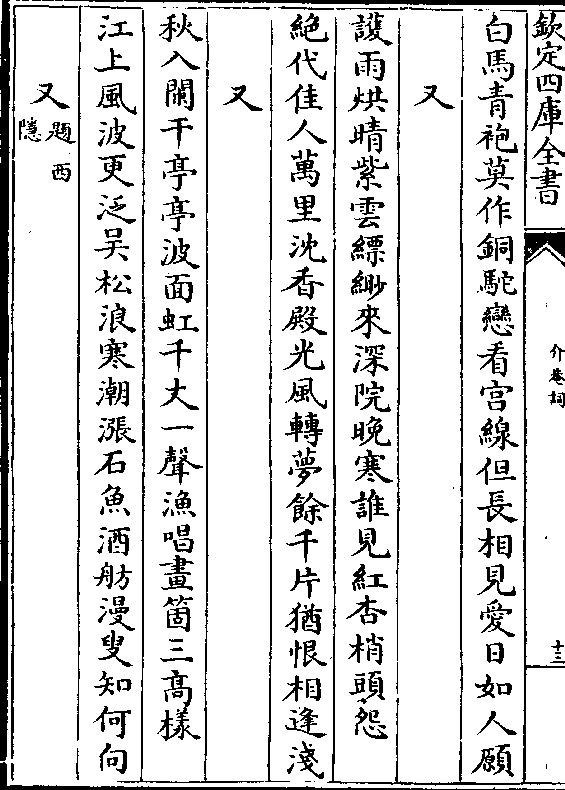 欽定四庫全書
介菴詞
十三
白馬青袍莫作銅駝戀看宫線但長相見愛日如人願
又
護雨烘晴紫雲縹緲來深院晚寒誰見紅杏梢頭怨
絶代佳人萬里沈香殿光風轉夢餘千片猶恨相逢淺
又
秋入闌干亭亭波面虹千丈一聲漁唱畫箇三高様
江上風波更泛吴松浪寒潮漲石魚酒舫漫叟知何向
又題西隱